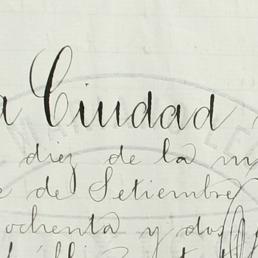 a Ciudad
diez de la m
e de Setiembre
ochenta y dos